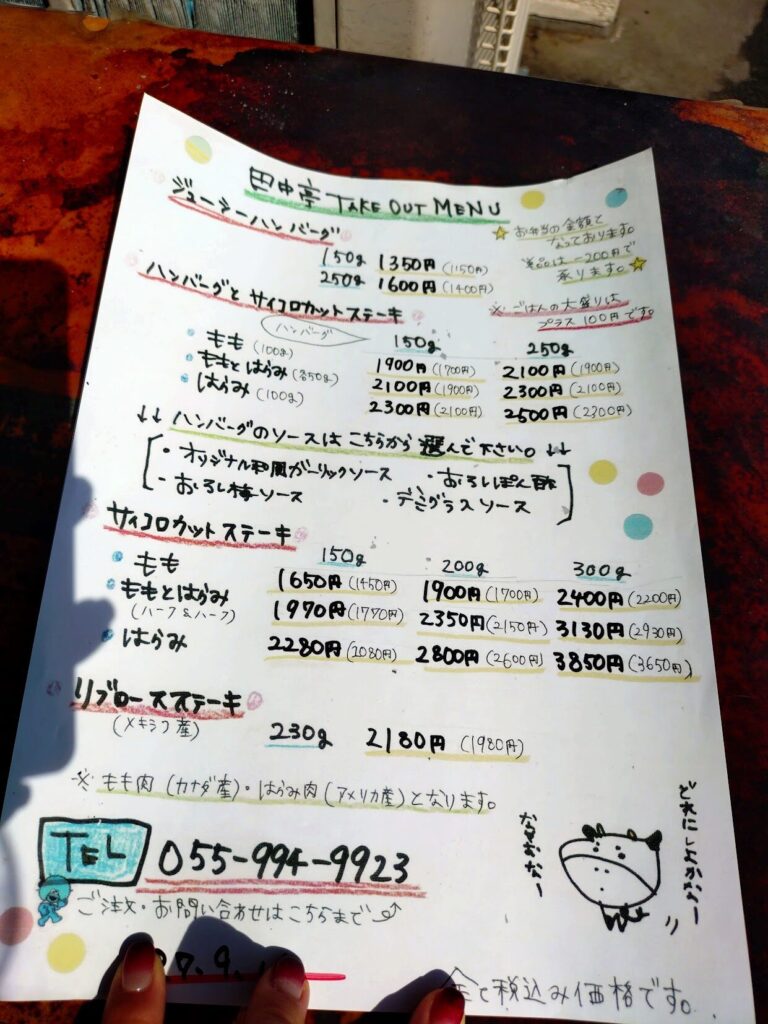 田中亭 TAKE OUT MENU
ジューシーハンバーグ
150g 1350円(1150円)
250g 1600円(1400円)
☆お弁当の金額と
なっております。
単品は-200円で
承ります。☆
※ごはんの大盛りは
プラス100円です。
ハンバーグとサイコロカットステーキ
ハンバーグ 150g 250g
・もも(100g) 1900円(1700円) 2100円(1900円)
・ももとはらみ(各50g) 2100円(1900円) 2300円(2100円)
・はらみ(100g) 2300円(2100円) 2500円(2300円)
↓↓ハンバーグのソースはこちらから選んで下さい。↓↓
・オリジナル和風ガーリックソース ・おろしぽん酢
・おろし梅ソース ・デミグラスソース
サイコロカットステーキ
150g 200g 300g
・もも 1650円(1450円) 1900円(1700円) 2400円(2200円)
・ももとはらみ 1970円(1770円) 2350円(2150円) 3130円(2930円)
(ハーフ&ハーフ)
・はらみ 2280円(1080円) 2800円(2600円) 3850円(3650円)
リブロースステーキ
(メキシコ産) 230g 2180円(1980円)
※もも肉(カナダ産)・はらみ肉(アメリカ産)となります。
どれにしよかなー
なやむなー
TEL 055-994-9923
ご注文・お問い合わせはこちらまで
全て税込み価格です。